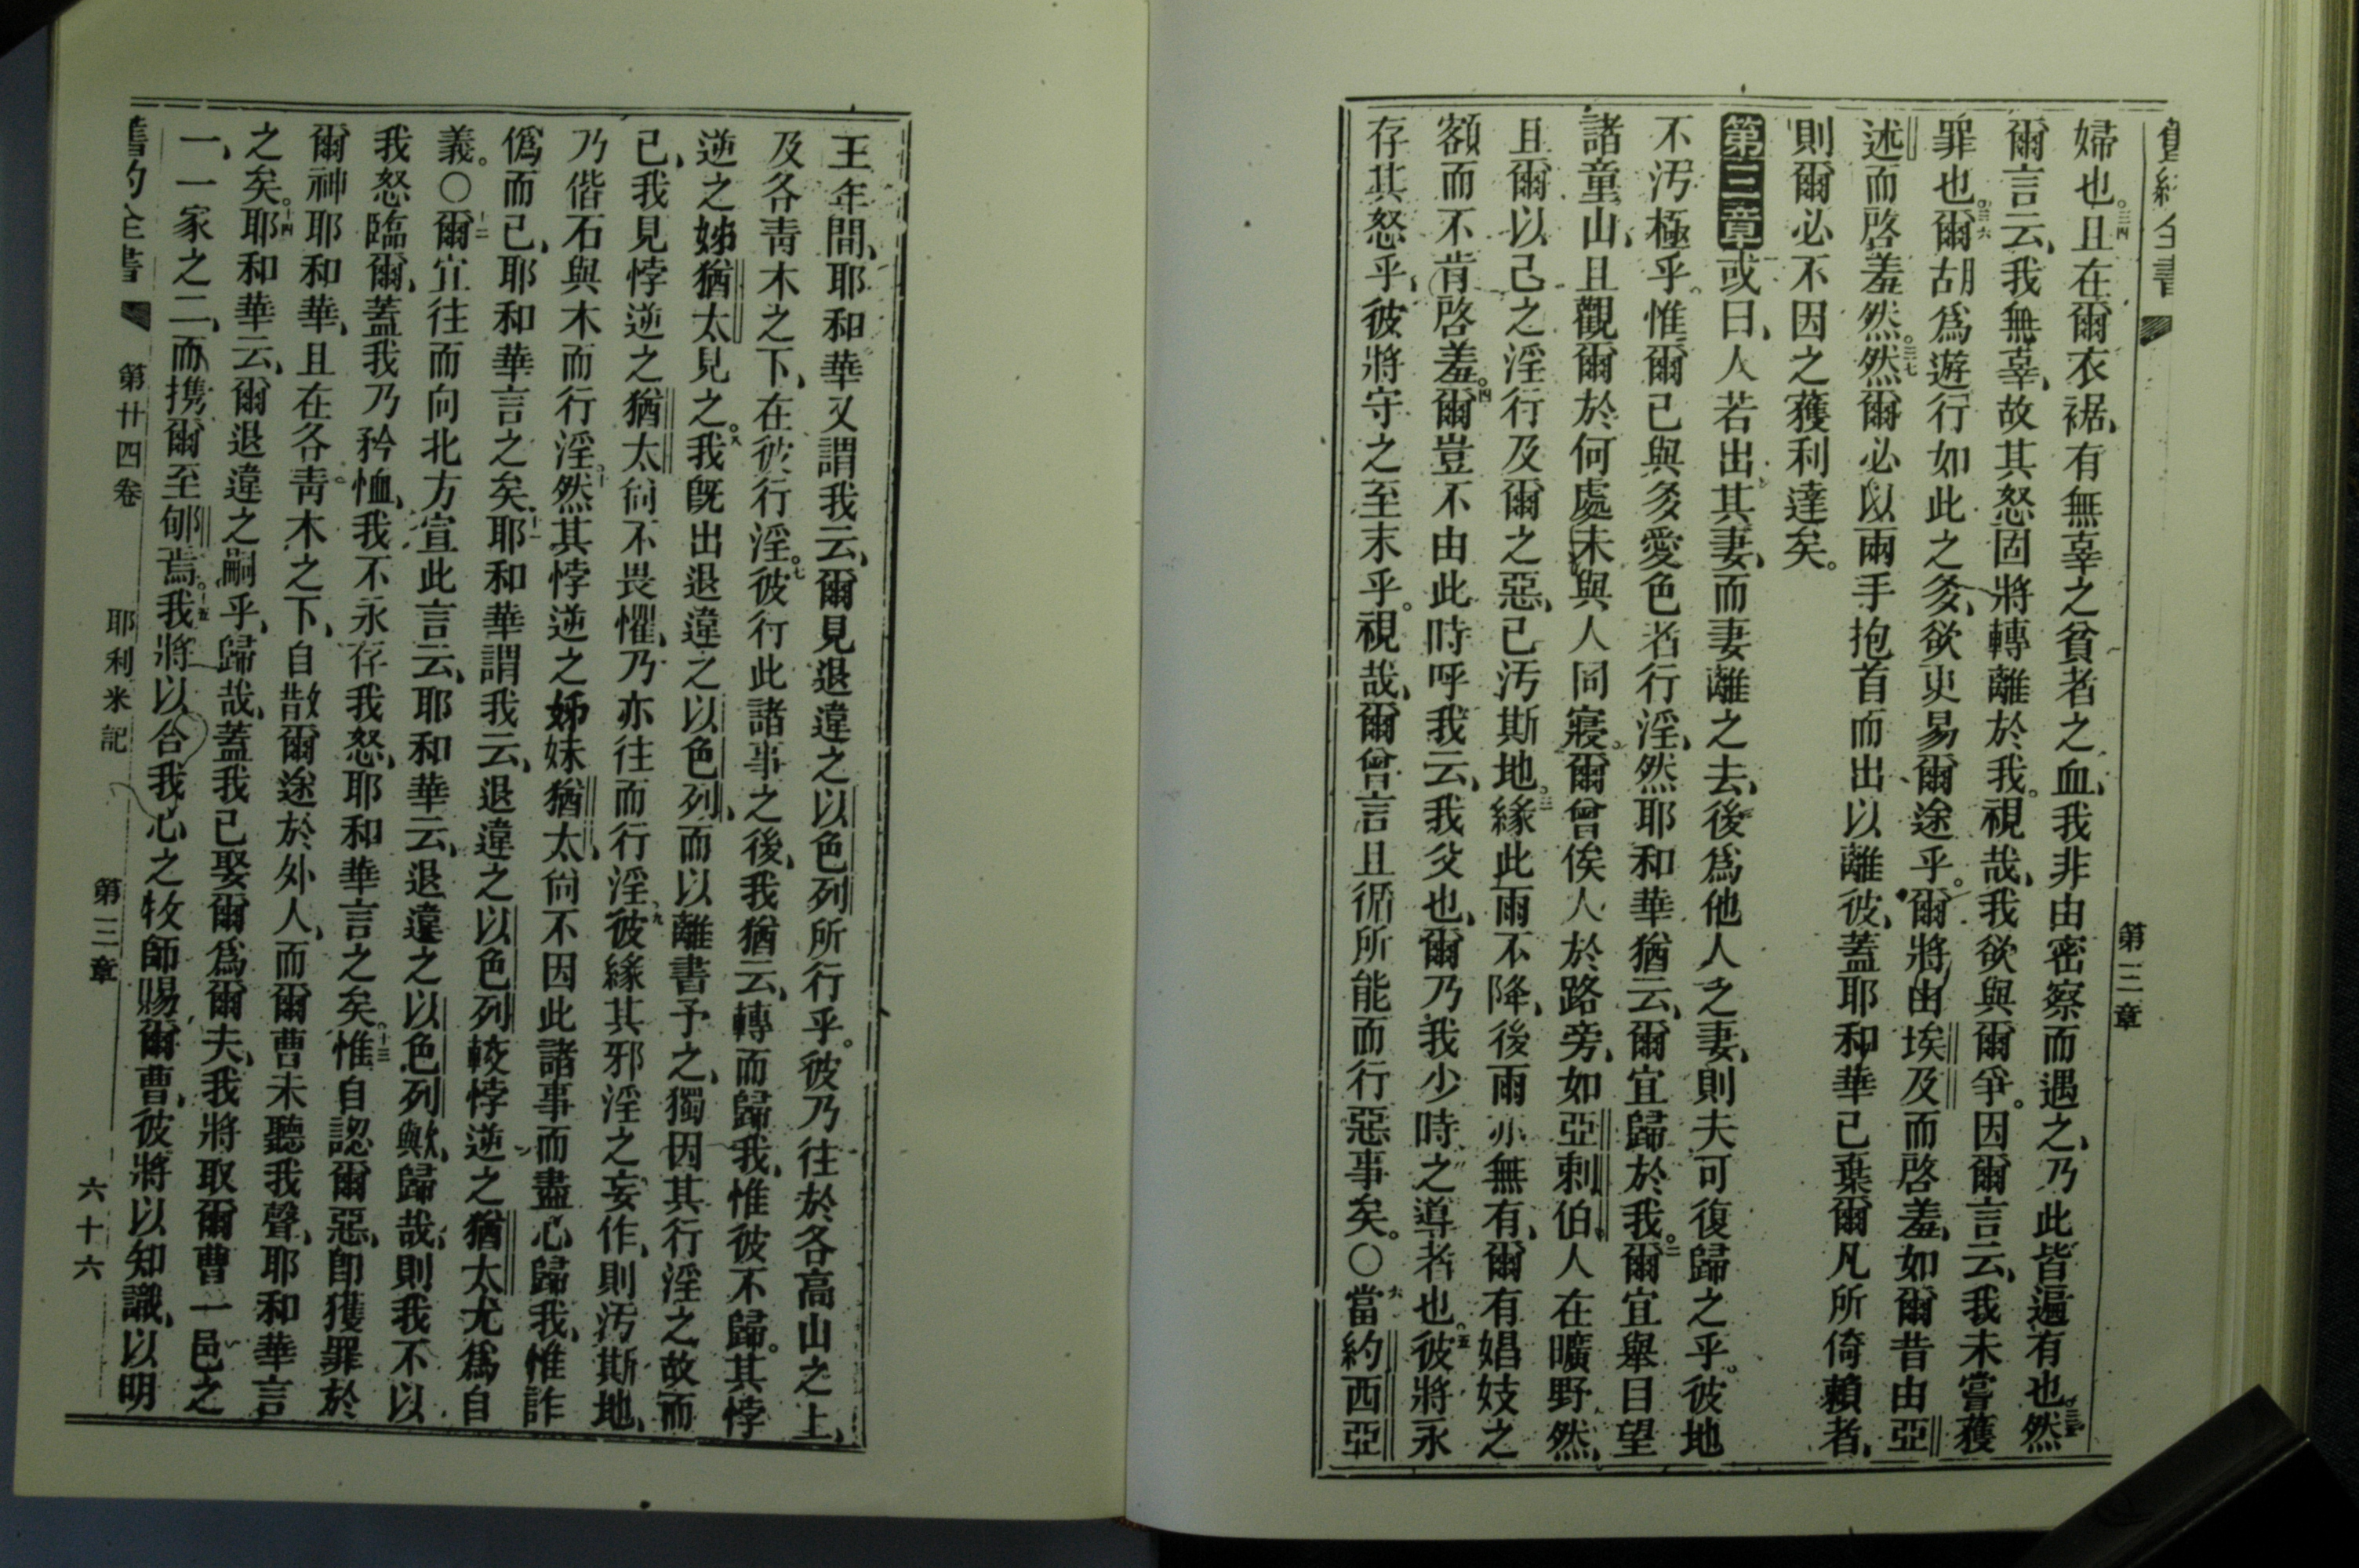 舊約全書
第三章
婦也。三四且在爾衣裾、有無辜之貧者之血、我非由密察而遇之、乃此皆遍有也。三五然
爾言云、我無辜、故其怒固將轉離於我。視哉、我欲與爾爭。因爾言云、我未嘗獲
罪也。三六爾胡爲遊行如此之多、欲更易爾途乎。爾將由埃及而啓羞、如爾昔由亞
述而啓羞然。三七然爾必以兩手抱首而出以離彼、蓋耶和華已棄爾凡所倚賴者、
則爾必不因之獲利達矣。
第三章或曰、人若出其妻、而妻離之去、後爲他人之妻、則夫可復歸之乎。彼地
不汚極乎。惟爾已與多愛色者行淫、然耶和華猶云、爾宜歸於我。二爾宜舉目望
諸童山、且觀爾於何處未與人同寢。爾曾俟人於路旁、如亞剌伯人在曠野然、
且爾以己之淫行及爾之惡、已汚斯地。三緣此雨不降、後雨亦無有、爾有娼妓之
額而不肯啓羞。四爾豈不由此時呼我云、我父也、爾乃我少時之導者也。五彼將永
存其怒乎、彼將守之至末乎。視哉、爾曾言且循所能而行惡事矣。〇六當約西亞
王年間、耶和華又謂我云、爾見退違之以色列所行乎。彼乃往於各高山之上、
及各靑木之下、在彼行淫。七彼行此諸事之後、我猶云、轉而歸我、惟彼不歸。其悖
逆之姊猶太見之。八我旣出退違之以色列、而以離書予之、獨因其行淫之故而
已、我見悖逆之猶太尙不畏懼、乃亦往而行淫、九彼緣其邪淫之妄作、則汚斯地、
乃偕石與木而行淫。十然其悖逆之姊妹猶太、尙不因此諸事而盡心歸我、惟詐
僞而已、耶和華言之矣。十一耶和華謂我云、退違之以色列較悖逆之猶太尤爲自
義。〇十二爾宜往而向北方宣此言云、耶和華云、退違之以色列歟、歸哉、則我不以
我怒臨爾、蓋我乃矜恤、我不永存我怒、耶和華言之矣。十三惟自認爾惡、卽獲罪於
爾神耶和華、且在各靑木之下、自散爾途於外人、而爾曹未聽我聲、耶和華言
之矣。十四耶和華云、爾退違之嗣乎、歸哉、蓋我已娶爾爲爾夫、我將取爾曹一邑之
一、一家之二、而携爾至郇焉。十五我將以合我心之牧師賜爾曹、彼將以知識、以明
舊約全書
第廿四卷
耶利米記
第三章
六十六